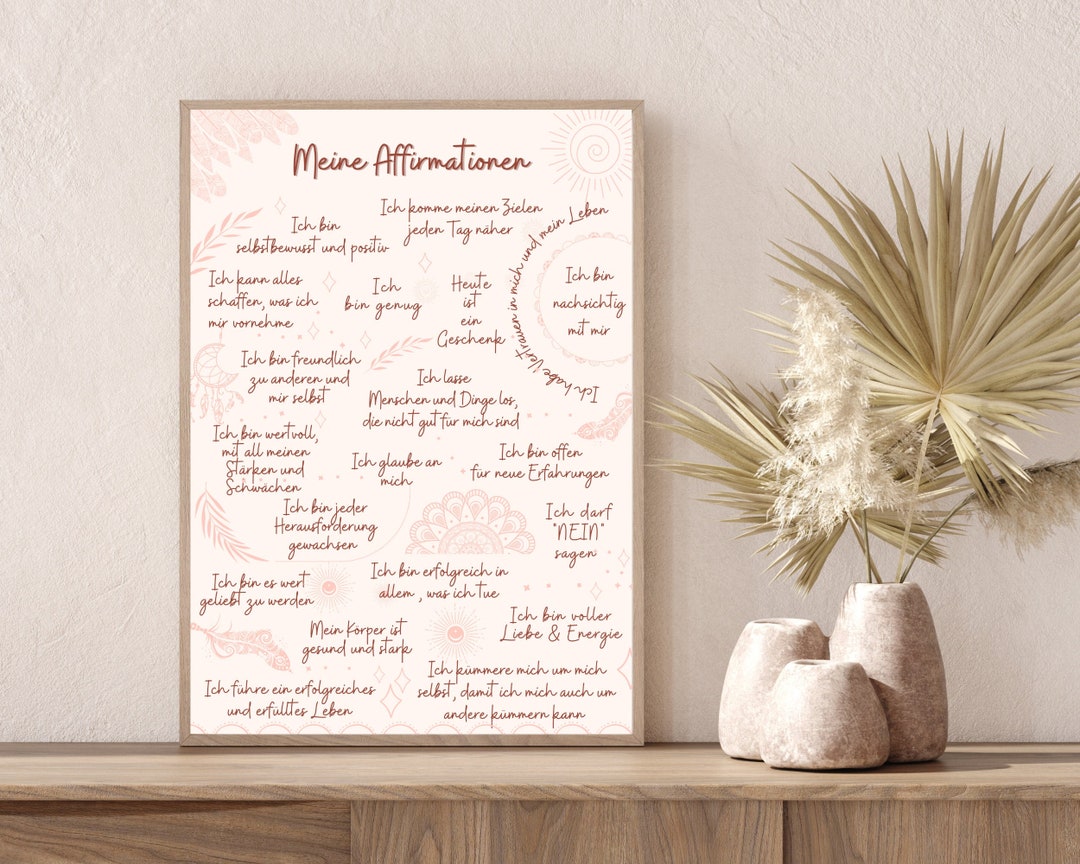 Meine Affirmationen
Ich komme meinen Zielen
jeden Tag näher
Ich bin
selbstbewusst und positiv
Ich habe Vertrauen in mich und mein Leben
Ich kann alles
schaffen, was ich
mir vornehme
Ich
bin genug
Heute
ist
ein
Geschenk
Ich bin
nachsichtig
mit mir
Ich bin freundlich
zu anderen und
mir selbst
Ich lasse
Menschen und Dinge los,
die nicht gut für mich sind
Ich bin wertvoll,
mit all meinen
Stärken und
Schwächen
Ich glaube an
mich
Ich bin offen
für neue Erfahrungen
Ich bin jeder
Herausforderung
gewachsen
Ich darf
"NEIN"
sagen
Ich bin es wert
geliebt zu werden
Ich bin erfolgreich in
allem , was ich tue
Mein Körper ist
gesund und stark
Ich bin voller
Liebe & Energie
Ich führe ein erfolgreiches
und erfülltes Leben
Ich kümmere mich um mich
selbst, damit ich mich auch um
andere kümmern kann